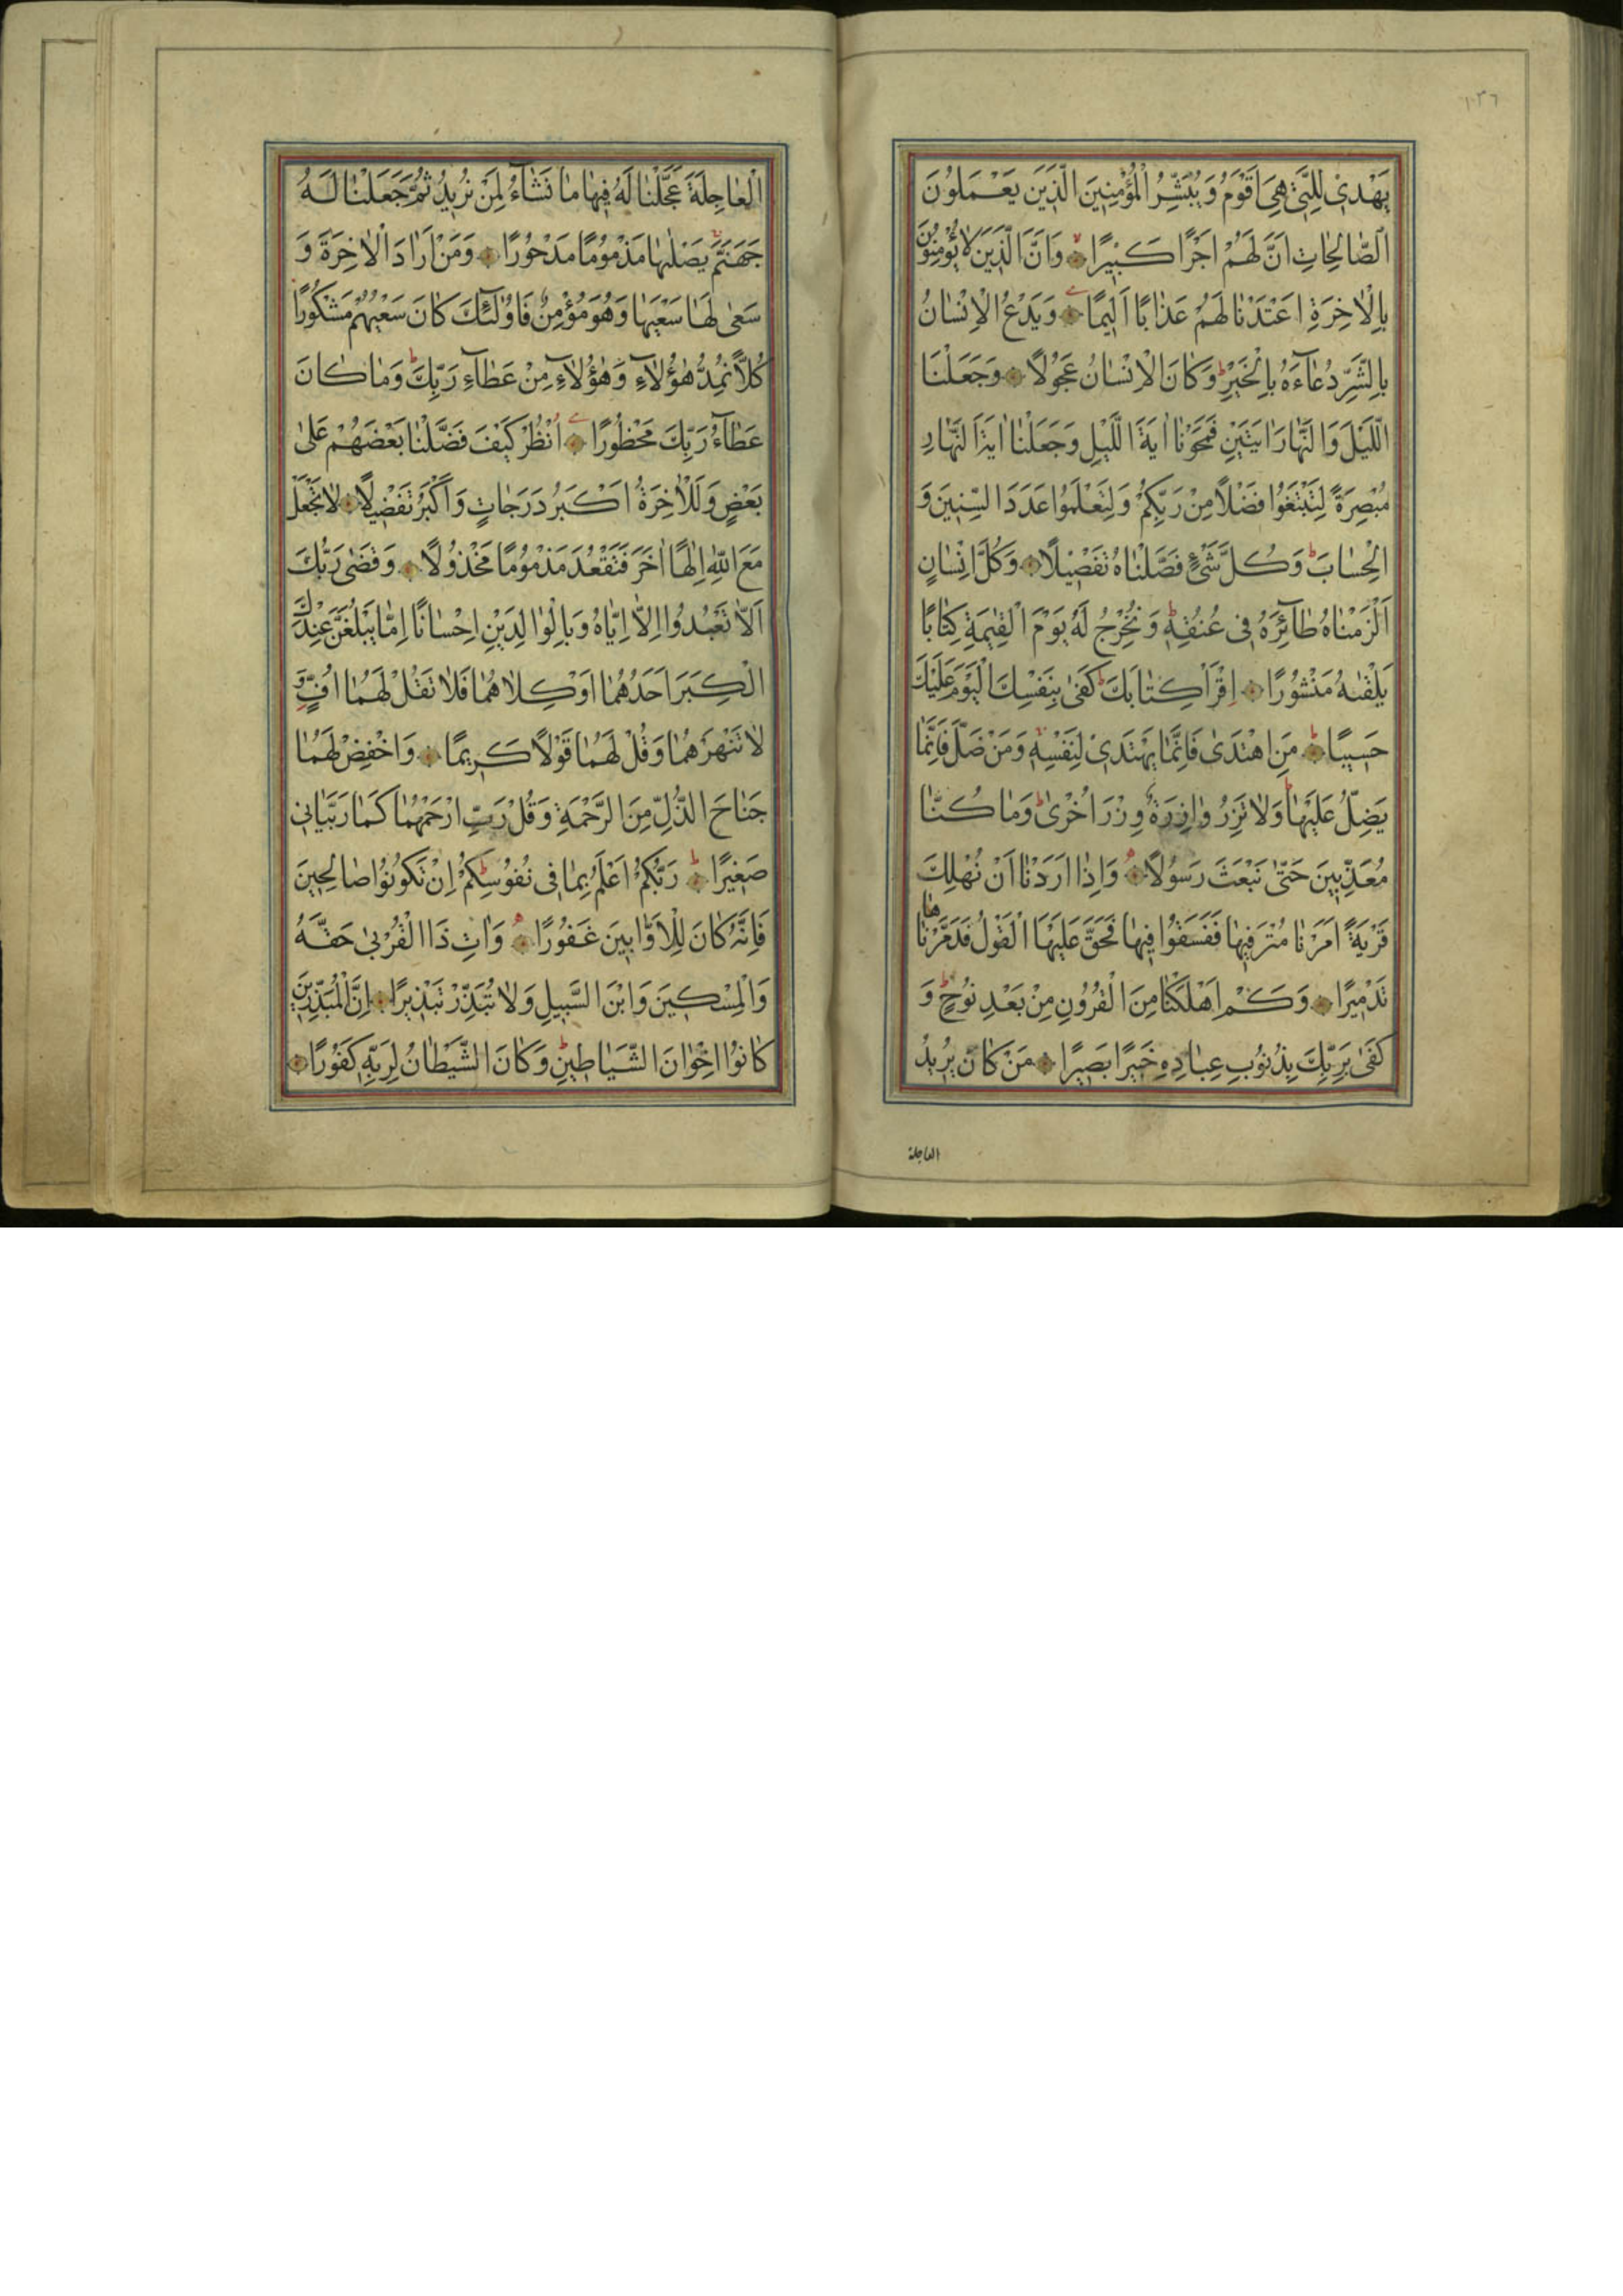 ١٣٦
يَهْدِي لِلَّتِي هِيَ اَقْوَمُ وَيُبَشِّرُ الْمُؤْمِنِينَ الَّذِينَ يَعْمَلُونَ
الصَّالِحَاتِ اَنَّ لَهُمْ اَجْرًا كَبِيرًا وَاَنَّ الَّذِينَ لَا يُؤْمِنُونَ
بِالْاٰخِرَةِ اَعْتَدْنَا لَهُمْ عَذَابًا اَلِيمًا وَيَدْعُ الْاِنْسَانُ
بِالشَّرِّ دُعَآءَهُ بِالْخَيْرِ وَكَانَ الْاِنْسَانُ عَجُولًا وَجَعَلْنَا
الَّيْلَ وَالنَّهَارَ اٰيَتَيْنِ فَمَحَوْنَا اٰيَةَ الَّيْلِ وَجَعَلْنَا اٰيَةَ النَّهَارِ
مُبْصِرَةً لِتَبْتَغُوا فَضْلًا مِنْ رَبِّكُمْ وَلِتَعْلَمُوا عَدَدَ السِّنِينَ وَ
الْحِسَابَ وَكُلَّ شَيْءٍ فَصَّلْنَاهُ تَفْصِيلًا وَكُلَّ اِنْسَانٍ
اَلْزَمْنَاهُ طَآئِرَهُ فِي عُنُقِهِ وَنُخْرِجُ لَهُ يَوْمَ الْقِيٰمَةِ كِتَابًا
يَلْقٰيهُ مَنْشُورًا اِقْرَاْ كِتَابَكَ كَفٰى بِنَفْسِكَ الْيَوْمَ عَلَيْكَ
حَسِيبًا مَنِ اهْتَدٰى فَاِنَّمَا يَهْتَدِي لِنَفْسِهِ وَمَنْ ضَلَّ فَاِنَّمَا
يَضِلُّ عَلَيْهَا وَلَا تَزِرُ وَازِرَةٌ وِزْرَ اُخْرٰى وَمَا كُنَّا
مُعَذِّبِينَ حَتّٰى نَبْعَثَ رَسُولًا وَاِذَا اَرَدْنَا اَنْ نُهْلِكَ
قَرْيَةً اَمَرْنَا مُتْرَفِيهَا فَفَسَقُوا فِيهَا فَحَقَّ عَلَيْهَا الْقَوْلُ فَدَمَّرْنَاهَا
تَدْمِيرًا وَكَمْ اَهْلَكْنَا مِنَ الْقُرُونِ مِنْ بَعْدِ نُوحٍ وَ
كَفٰى بِرَبِّكَ بِذُنُوبِ عِبَادِهِ خَبِيرًا بَصِيرًا مَنْ كَانَ يُرِيدُ
العاجلة
الْعَاجِلَةَ عَجَّلْنَا لَهُ فِيهَا مَا نَشَآءُ لِمَنْ نُرِيدُ ثُمَّ جَعَلْنَا لَهُ
جَهَنَّمَ يَصْلٰيهَا مَذْمُومًا مَدْحُورًا وَمَنْ اَرَادَ الْاٰخِرَةَ وَ
سَعٰى لَهَا سَعْيَهَا وَهُوَ مُؤْمِنٌ فَاُولٰئِكَ كَانَ سَعْيُهُمْ مَشْكُورًا
كُلًّا نُمِدُّ هٰؤُلَآءِ وَهٰؤُلَآءِ مِنْ عَطَآءِ رَبِّكَ وَمَا كَانَ
عَطَآءُ رَبِّكَ مَحْظُورًا اُنْظُرْ كَيْفَ فَضَّلْنَا بَعْضَهُمْ عَلٰى
بَعْضٍ وَلَلْاٰخِرَةُ اَكْبَرُ دَرَجَاتٍ وَاَكْبَرُ تَفْضِيلًا لَا تَجْعَلْ
مَعَ اللّٰهِ اِلٰهًا اٰخَرَ فَتَقْعُدَ مَذْمُومًا مَخْذُولًا وَقَضٰى رَبُّكَ
اَلَّا تَعْبُدُوا اِلَّا اِيَّاهُ وَبِالْوَالِدَيْنِ اِحْسَانًا اِمَّا يَبْلُغَنَّ عِنْدَكَ
الْكِبَرَ اَحَدُهُمَا اَوْ كِلَاهُمَا فَلَا تَقُلْ لَهُمَا اُفٍّ وَ
لَا تَنْهَرْهُمَا وَقُلْ لَهُمَا قَوْلًا كَرِيمًا وَاخْفِضْ لَهُمَا
جَنَاحَ الذُّلِّ مِنَ الرَّحْمَةِ وَقُلْ رَبِّ ارْحَمْهُمَا كَمَا رَبَّيَانِي
صَغِيرًا رَبُّكُمْ اَعْلَمُ بِمَا فِي نُفُوسِكُمْ اِنْ تَكُونُوا صَالِحِينَ
فَاِنَّهُ كَانَ لِلْاَوَّابِينَ غَفُورًا وَاٰتِ ذَا الْقُرْبٰى حَقَّهُ
وَالْمِسْكِينَ وَابْنَ السَّبِيلِ وَلَا تُبَذِّرْ تَبْذِيرًا اِنَّ الْمُبَذِّرِينَ
كَانُوا اِخْوَانَ الشَّيَاطِينِ وَكَانَ الشَّيْطَانُ لِرَبِّهِ كَفُورًا